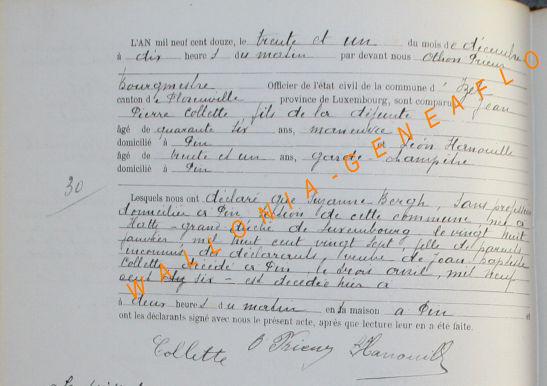 L'AN mil neuf cent douze, le trente et un du mois de décembre
à dix heures du matin par devant nous Othon Prieur
Bourgmestre Officier de l'état civil de la commune d' Izel
canton de Florenville province de Luxembourg, sont comparus Jean
Pierre Collette fils de la défunte
âgé de quarante six ans, manœuvre
domicilié à Pin et Léon Hanouille
âgé de trente et un ans, garde-champêtre
domicilié à Pin
30
Lesquels nous ont déclaré que Suzanne Bergh, sans profession
domiciliée à Pin, section de cette commune née à
grand duché de Luxembourg le vingt huit
janvier, mil huit cent vingt sept, fille de parents
inconnus des déclarants, veuve de Jean Baptiste
Collette décédé à Pin, le avril, mil neuf
cent six - est décédée hier à
à deux heures du matin en sa maison à Pin et
ont les déclarants signé avec nous le présent acte, après que lecture leur en a été faite.
Collette O Prieur L Hanouille
WALLONIA-GENEAFLO